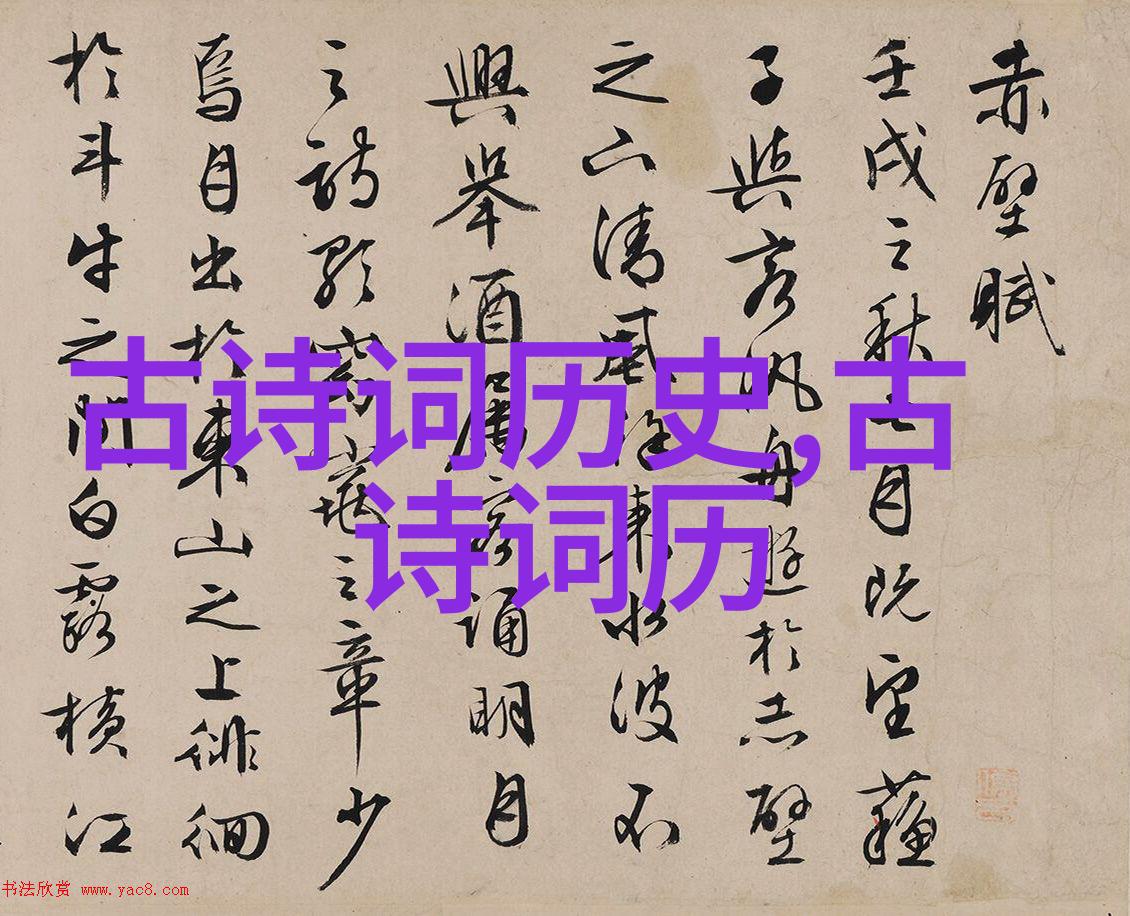 赤壁賦
壬戌之秋七月既望蘇
子與客汎舟遊於赤壁
之下清風徐來水波不
興舉酒屬客誦明月
之詩歌窈窕之章少
焉月出於東山之上徘徊
於斗牛之間白露橫江
古诗词历史,古
诗词历
书法欣赏 www.yac8.com